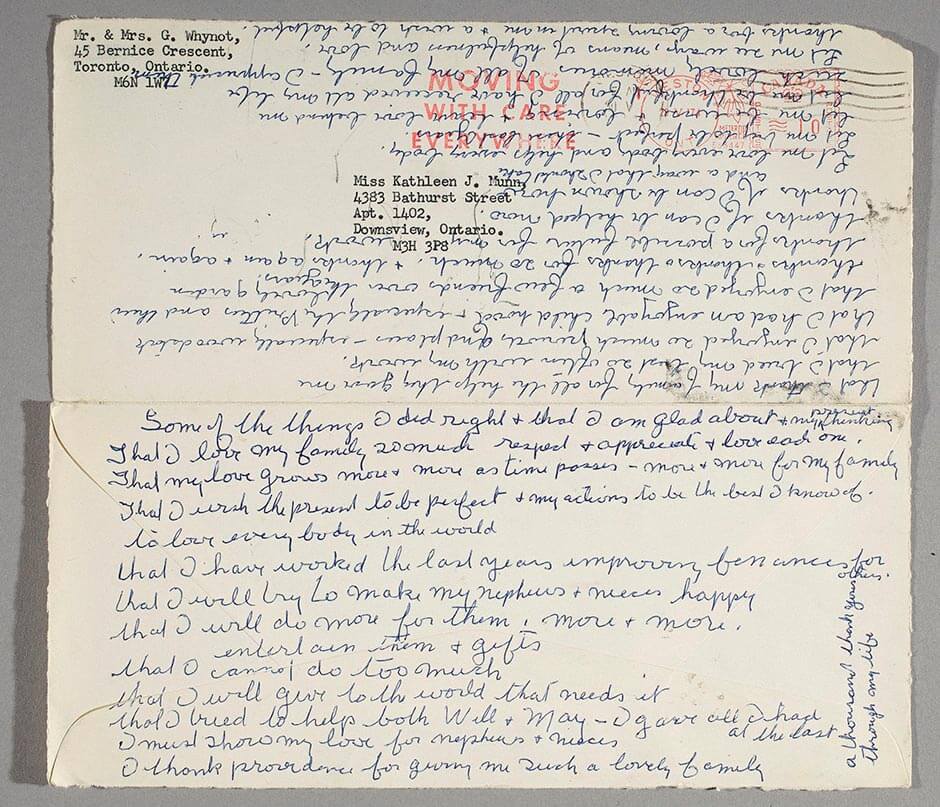 Mr. & Mrs. G. Whynot,
45 Bernice Crescent,
Toronto, Ontario.
M6N 1W7
MOVING
WITH CARE
EVERYWHERE
CANADA
Miss Kathleen J. Munn,
4383 Bathurst Street
Apt. 1402,
Downsview, Ontario.
M3H 3P8
Some of the things I did right + that I am glad about + my present thinking
That I love my family so much respect + appreciate + love each one.
That my love grows more + more as time passes - more + more for my family
That I wish the present to be perfect + my actions to be the best I know of.
to love every body in the world
that I have worked the last years improving finances for others.
that I will try to make my nephews + nieces happy
that I will do more for them, more + more.
entertain them + gifts
that I cannot do too much
that I will give to the world that needs it
that I tried to help both Will + May - I gave all I had
at the last
I must show my love for nephews + nieces
I thank providence for giving me such a lovely family
a thousand thank yous
through my life
that I thank my family for all the help they gave me
that I tried my best so often with my work.
that I enjoyed so much and places - especially woodstock
that I had an enjoyable childhood + especially the and their
lovely garden
that I enjoyed so much a few friends over the years.
thanks + thanks + thanks for so much. + thanks again + again.
thanks for a possible future for my work.
thanks if I can be helped now.
thanks if I can be shown how
and a way that I should take
Let me love every body and help every body.
let me be perfect - then
let me be loving + leave love behind me
let me be thankful for all I have received all my life
with lovely memories of all my family - I appreciate them
Let me see ways, means of helpfulness and love
thanks for a loving spirit in me + a wish to be helpful.